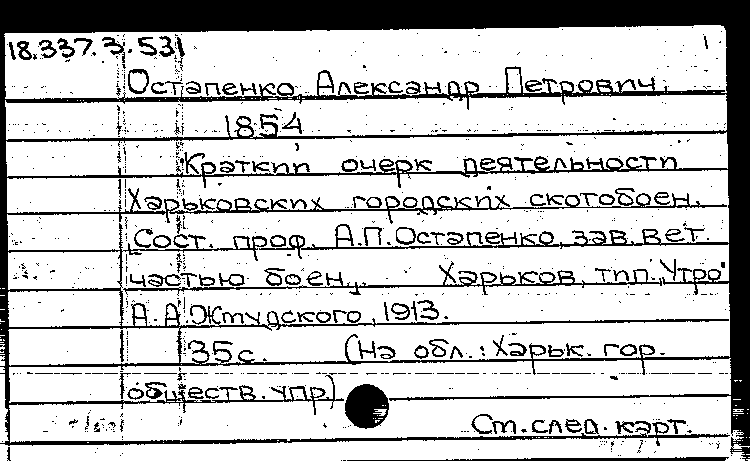 18.337.3.531 1
Остапенко, Александр Петрович,
1854
Краткии очерк деятельности
Харьковских городских скотобоен.
[Сост. проф. А.П.Остапенко, зав. вет.
частью боен]. Харьков, тип. „Утро"
А.А.Жмудского, 1913.
35с. (На обл.: Харьк. гор.
обществ. упр.)
См. след. карт.